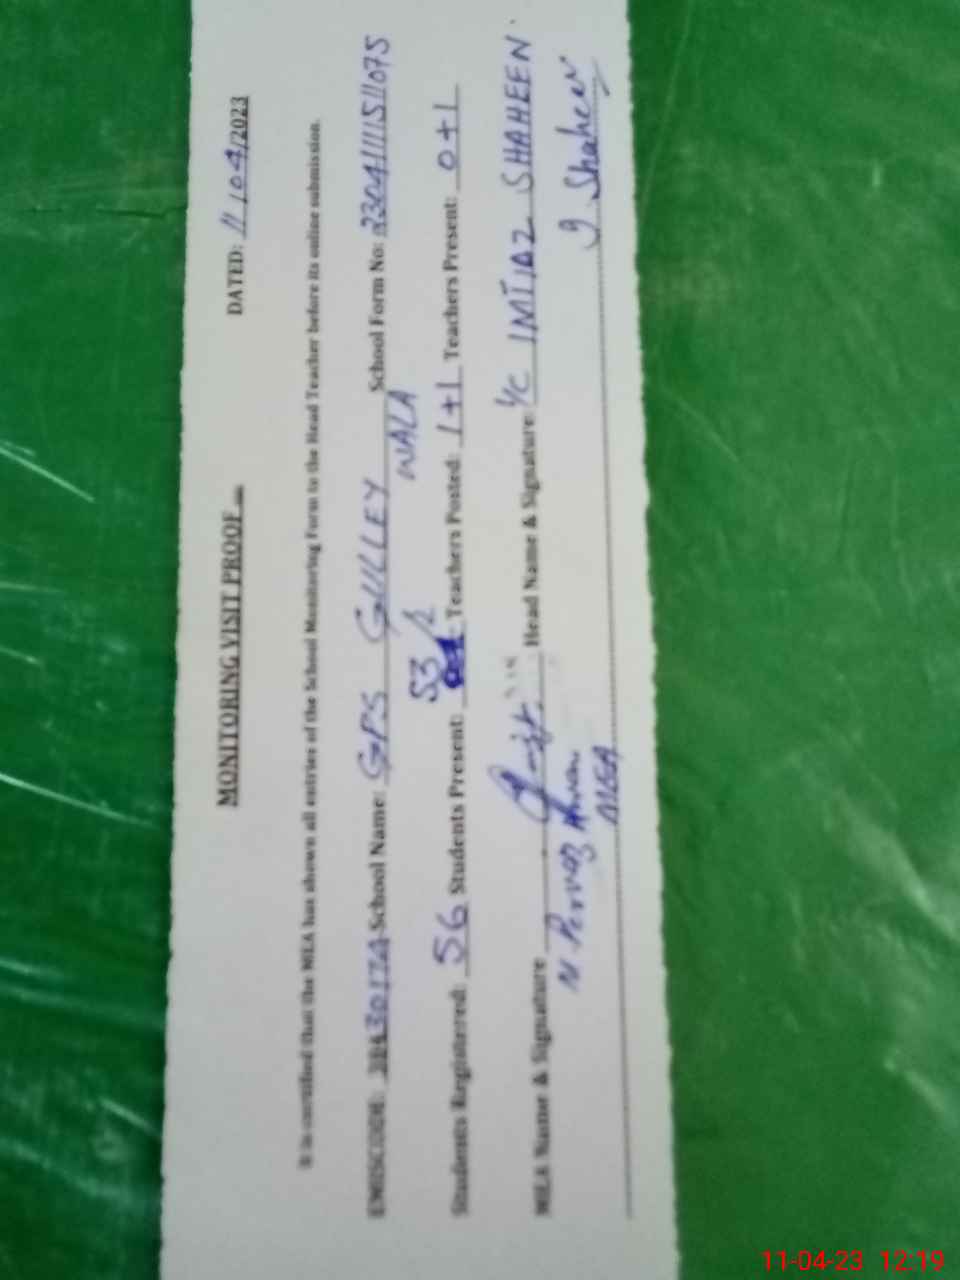 MONITORING VISIT PROOF
DATED: 11/04/2023
It is certified that the MEA has shown all entries of the School Monitoring Form to the Head Teacher before its online submission.
EMISCODE: School Name: GPS GULLEY WALA School Form No: 23041111511075
Students Registered: 56 Students Present: 53 Teachers Posted: 1+1 Teachers Present: 0+1
MEA Name & Signature Head Name & Signature: I/C IMTIAZ SHAHEEN
M. Pervaz
MEA
I Shaheen
11-04-23 12:19